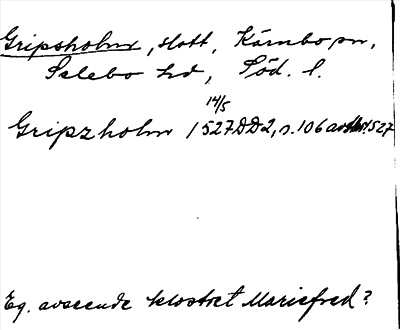 Gripsholm, slott, Kärnbo sn,
Selebo hd, Söd. l.
14/5
Gripzholm 1527 DD2, s. 106 1527
Eg. avseende klostret Mariefred?